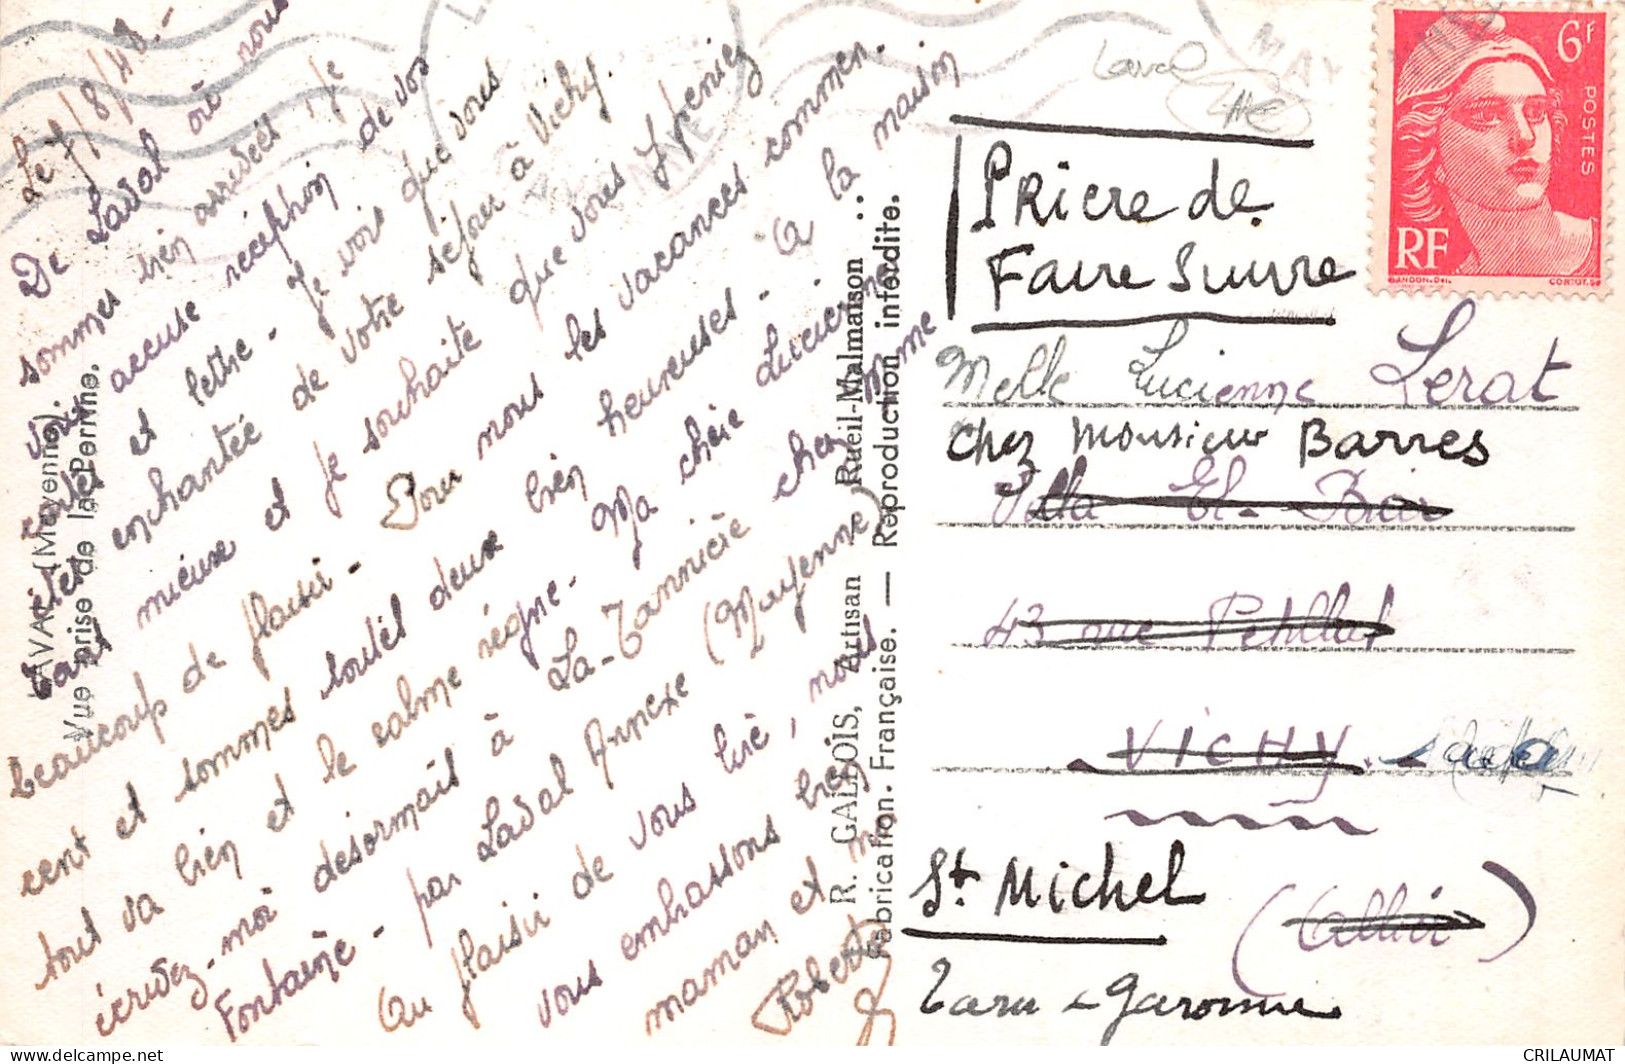 Le 7/8/48-
De Laval où nous
sommes bien arrivés je
vous accuse réception de vos
cartes et lettre- Je vois que vous
êtes enchantée de votre séjour à Vichy.
tant mieux et je souhaite que vous y preniez
beaucoup de plaisir- Pour nous les vacances commen-
cent et sommes toutes deux bien heureuses- a la maison
tout va bien et le calme règne- Ma chère Lucienne
écrivez-moi désormais à La-Tannière chez Mme
Fontaine- par Laval Annexe (Mayenne)
Au plaisir de vous lire, nous
vous embrassons bien
maman et moi
Roberte
LAVAL (Mayenne).
Vue prise de la Perrine.
R. GALLOIS, Artisan Rueil-Malmaison ::
Fabrication Française. — Reproduction interdite.
Laval
MAYENNE
6F
POSTES
RF
GANDON.Del.
CORTOT.SC
PRiere de
Faire Suivre
Melle Lucienne Lerat
chez Monsieur BARRES
Villa El-Biar
43 rue Petillat
VICHY.
St MicHel
(Allier)
Tarn-Garonne
CRILAUMAT